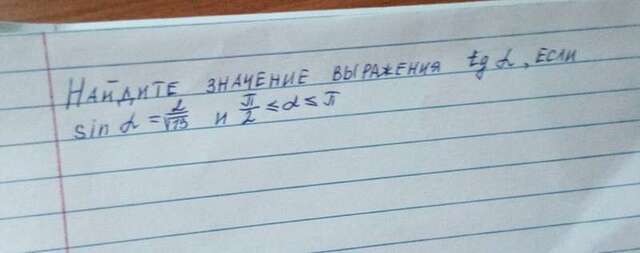 Найдите значение выражения tg α, если
sin α = 2/√13 и π/2 ≤ α ≤ π